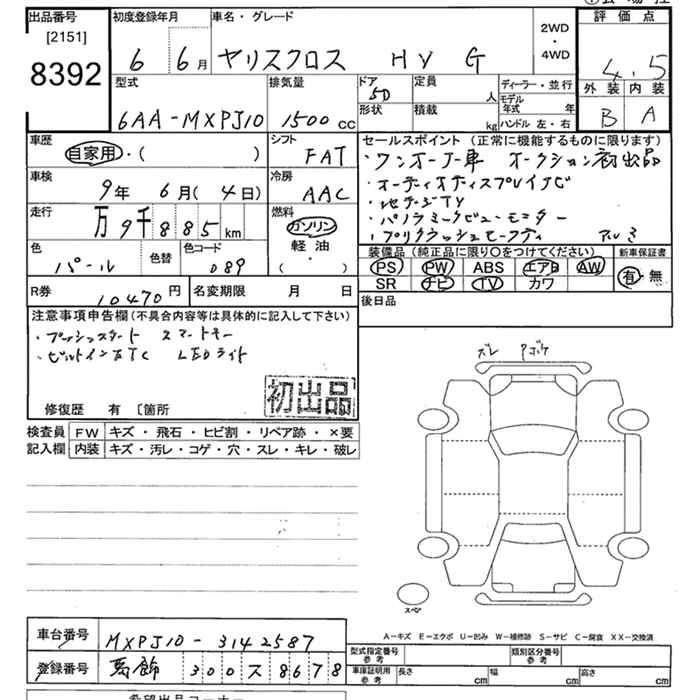 出品番号
[2151]
8392
初度登録年月
6 6月
車名・グレード
ヤリスクロス HV G
2WD
・
4WD
評価点
4.5
外装 内装
B A
型式
6AA-MXPJ10
排気量
1500 CC
ドア
5D
形状
定員
人
積載
kg
ディーラー・並行
モデル年式 年
ハンドル 左・右
車歴
自家用・( )
シフト
FAT
車検
9年 6月(4日)
冷房
AAC
走行
万9千885km
燃料
ガソリン
軽油
( ・ )
色
パール
色替
色コード
089
セールスポイント (正常に機能するものに限ります)
・ワンオーナー車 オークション初出品
・オーディオディスプレイナビ
・地デジTV
・パノラミックビューモニター
・プリクラッシュセーフティ アルミ
装備品 (純正品に限り○をつけてください)
PS PW ABS エアB AW
SR ナビ TV カワ
新車保証書
有・無
R券
10470円
名変期限 月 日
後日品
注意事項申告欄(不具合内容等は具体的に記入して下さい)
・プッシュスタート スマートキー
・ビルトインETC LEDライト
初出品
修復歴 有 〔箇所
検査員
記入欄
FW キズ・飛石・ヒビ割・リペア跡・×要
内装 キズ・汚レ・コゲ・穴・スレ・キレ・破レ
ズレ
スペア
A-キズ E-エクボ U-凹み W-補修跡 S-サビ C-腐食 XX-交換済
車台番号
MXPJ10-3142587
登録番号
葛飾 300ス8678
型式指定番号
参考
類別区分番号
参考
車庫証明用
参考
長さ cm 幅 cm 高さ cm
希望出品コーナー